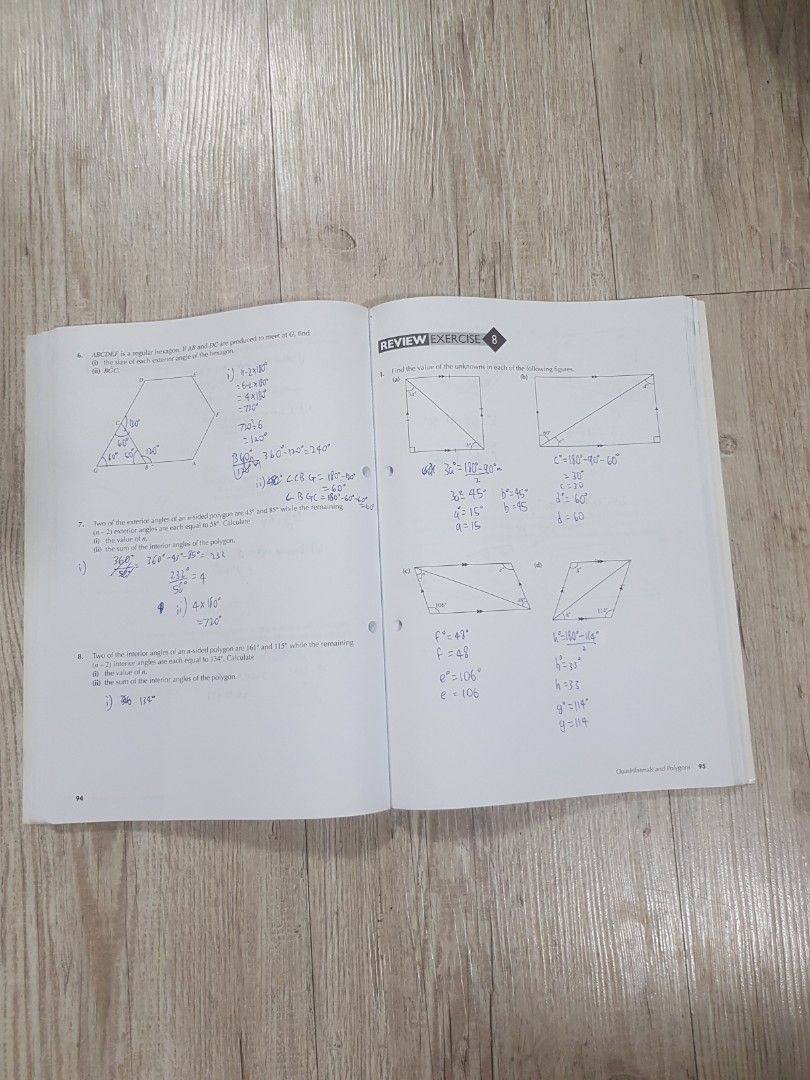 6. ABCDEF is a regular hexagon. If AB and DC are produced to meet at G, find
(i) the size of each exterior angle of the hexagon,
(ii) BĜC.
D
E
C
F
G
B
A
120°
60°
60°
60°
120°
i) n-2×180°
=6-2×180°
= 4×180°
=720°
720÷6
= 120°
360°-120°=240°
ii) ∠CBG = 180°-120°
= 60°
∠BGC = 180°-60°-60°
= 60
7. Two of the exterior angles of an n-sided polygon are 43° and 85° while the remaining
(n – 2) exterior angles are each equal to 58°. Calculate
(i) the value of n,
(ii) the sum of the interior angles of the polygon.
i) 360° - 43° - 85° = 232
232°
58° = 4
ii) 4×180°
=720°
8. Two of the interior angles of an n-sided polygon are 161° and 115° while the remaining
(n – 2) interior angles are each equal to 134°. Calculate
(i) the value of n,
(ii) the sum of the interior angles of the polygon.
i) 134°
94
REVIEW EXERCISE 8
1. Find the value of the unknowns in each of the following figures.
(a)
(b)
3a°
b°
c°
d°
3a°=180°-90°
2
3a°= 45°
a°=15°
a=15
b°=45°
b=45
c°=180°-90°-60°
=30°
c=30
d°= 60°
d=60
(c)
(d)
106°
48°
114°
f°=48°
f = 48
e°=106°
e = 106
h°=180°-114°
2
h°=33°
h=33
g°=114°
g=114
Quadrilaterals and Polygons 95